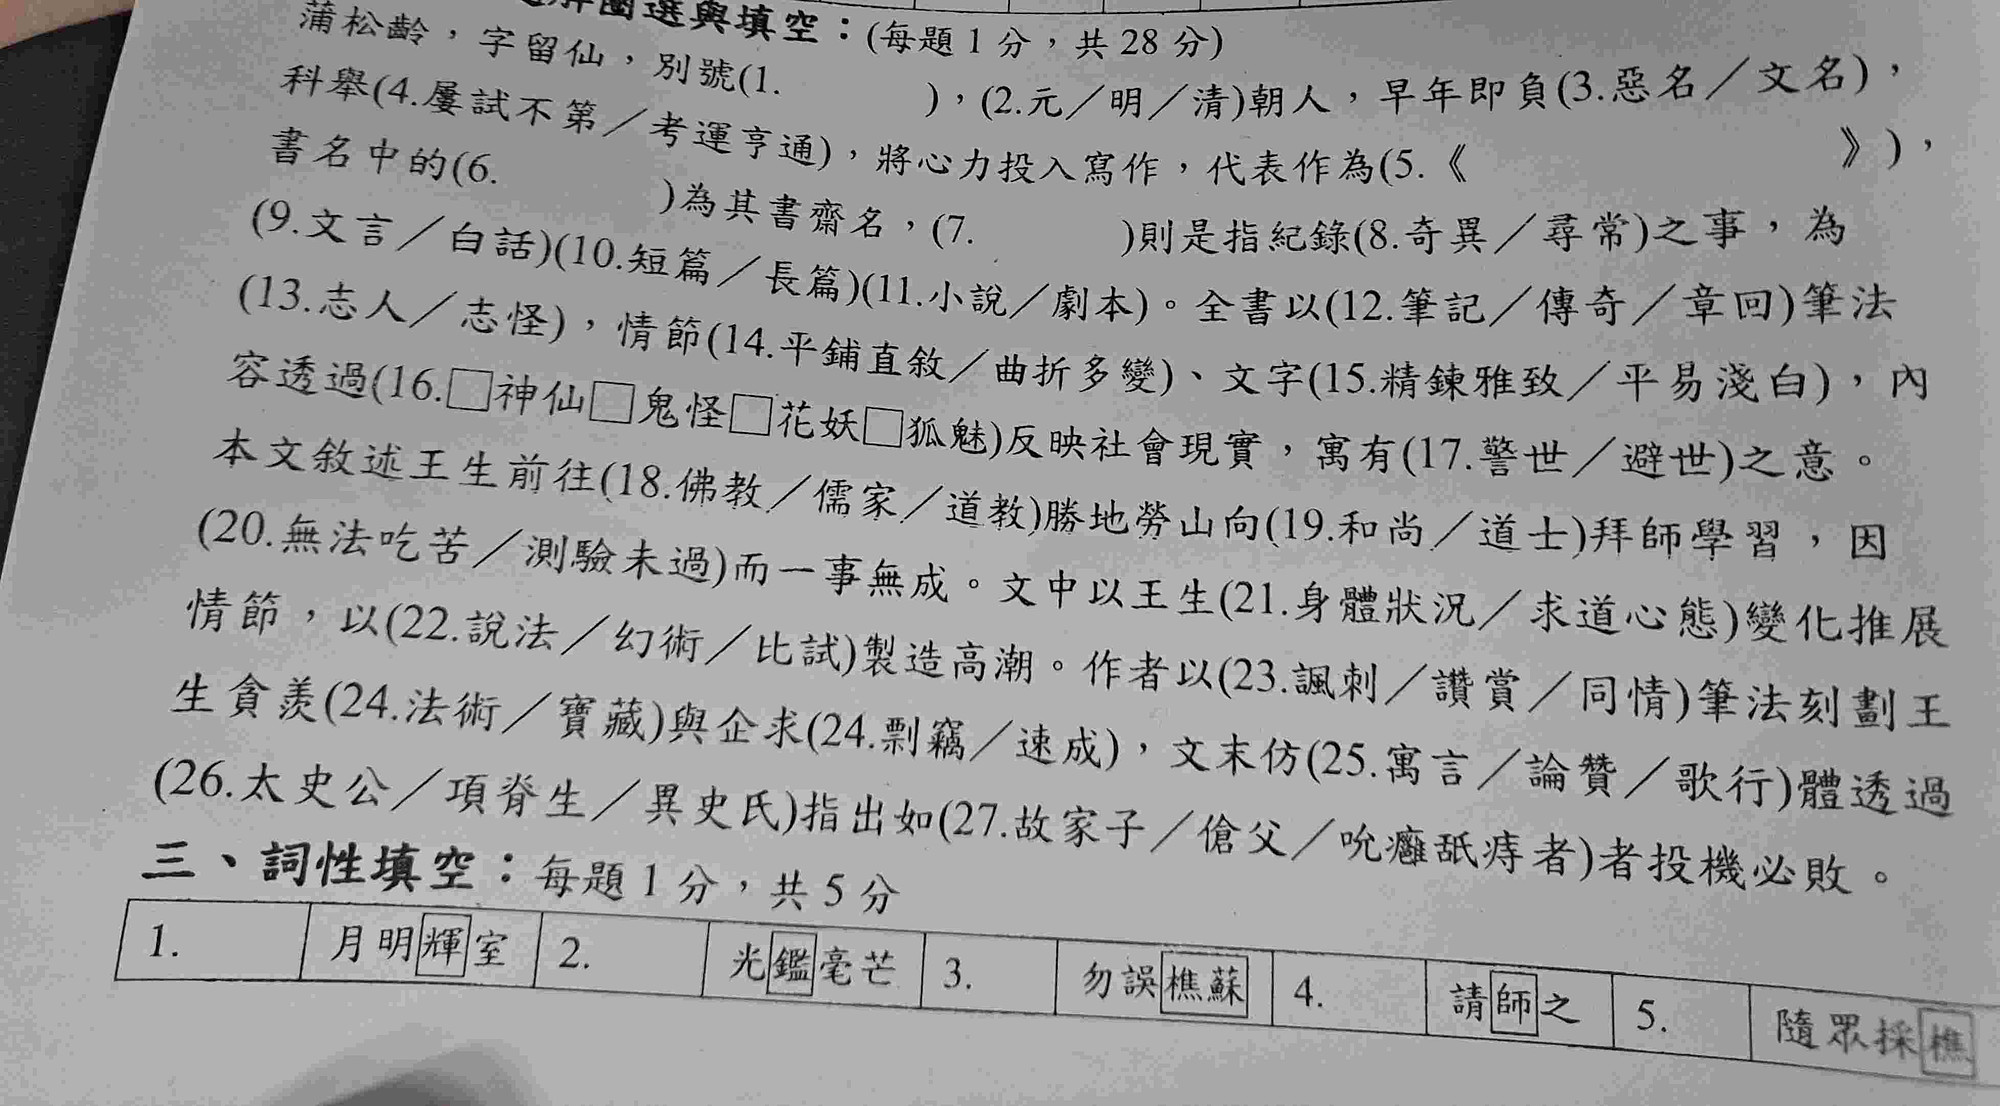 解圈選與填空：(每題 1 分，共 28 分)
蒲松齡，字留仙，別號(1.　　　)，(2.元／明／清)朝人，早年即負(3.惡名／文名)，
科舉(4.屢試不第／考運亨通)，將心力投入寫作，代表作為(5.《　　　》)，
書名中的(6.　　　)為其書齋名，(7.　　　)則是指紀錄(8.奇異／尋常)之事，為
(9.文言／白話)(10.短篇／長篇)(11.小說／劇本)。全書以(12.筆記／傳奇／章回)筆法
(13.志人／志怪)，情節(14.平鋪直敘／曲折多變)、文字(15.精鍊雅致／平易淺白)，內
容透過(16.□神仙□鬼怪□花妖□狐魅)反映社會現實，寓有(17.警世／避世)之意。
本文敘述王生前往(18.佛教／儒家／道教)勝地勞山向(19.和尚／道士)拜師學習，因
(20.無法吃苦／測驗未過)而一事無成。文中以王生(21.身體狀況／求道心態)變化推展
情節，以(22.說法／幻術／比試)製造高潮。作者以(23.諷刺／讚賞／同情)筆法刻劃王
生貪羨(24.法術／寶藏)與企求(24.剽竊／速成)，文末仿(25.寓言／論贊／歌行)體透過
(26.太史公／項脊生／異史氏)指出如(27.故家子／傖父／吮癰舐痔者)者投機必敗。
三、詞性填空：每題 1 分，共 5 分
1.　月明輝室　2.　光鑑毫芒　3.　勿誤樵蘇　4.　請師之　5.　隨眾採樵